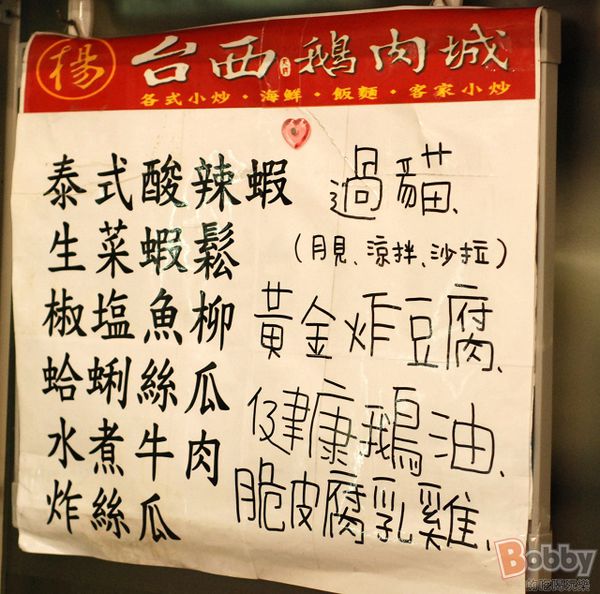 楊 台西鵝肉城
各式小炒・海鮮・飯麵・客家小炒
泰式酸辣蝦
生菜蝦鬆
椒塩魚柳
蛤蜊絲瓜
水煮牛肉
炸絲瓜
過貓、
(月見、涼拌、沙拉)
黃金炸豆腐、
健康鵝油、
脆皮腐乳雞、
Bobby
的吃喝玩樂